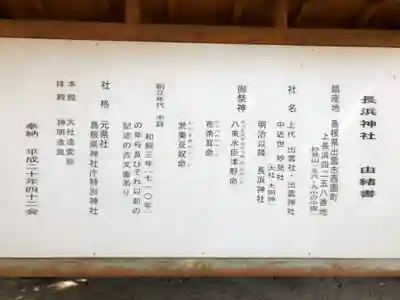 長浜神社　由緒書
鎮座地　島根県出雲市西園町
上長浜四二五八番地
妙見山
社名　上代　出雲社・出雲神社
中近世　妙見社
（天社　大明神）
明治以降　長浜神社
御祭神
八束水臣津野命
布帝耳命
淤美豆奴命
創立年代　不詳
和銅三年（七一〇年）
の年号及びそれ以前の
記述の古文書あり
社格　元県社
島根県神社庁特別神社
本殿　大社造変態
拝殿　神明造風
奉納　平成二十年四十二会